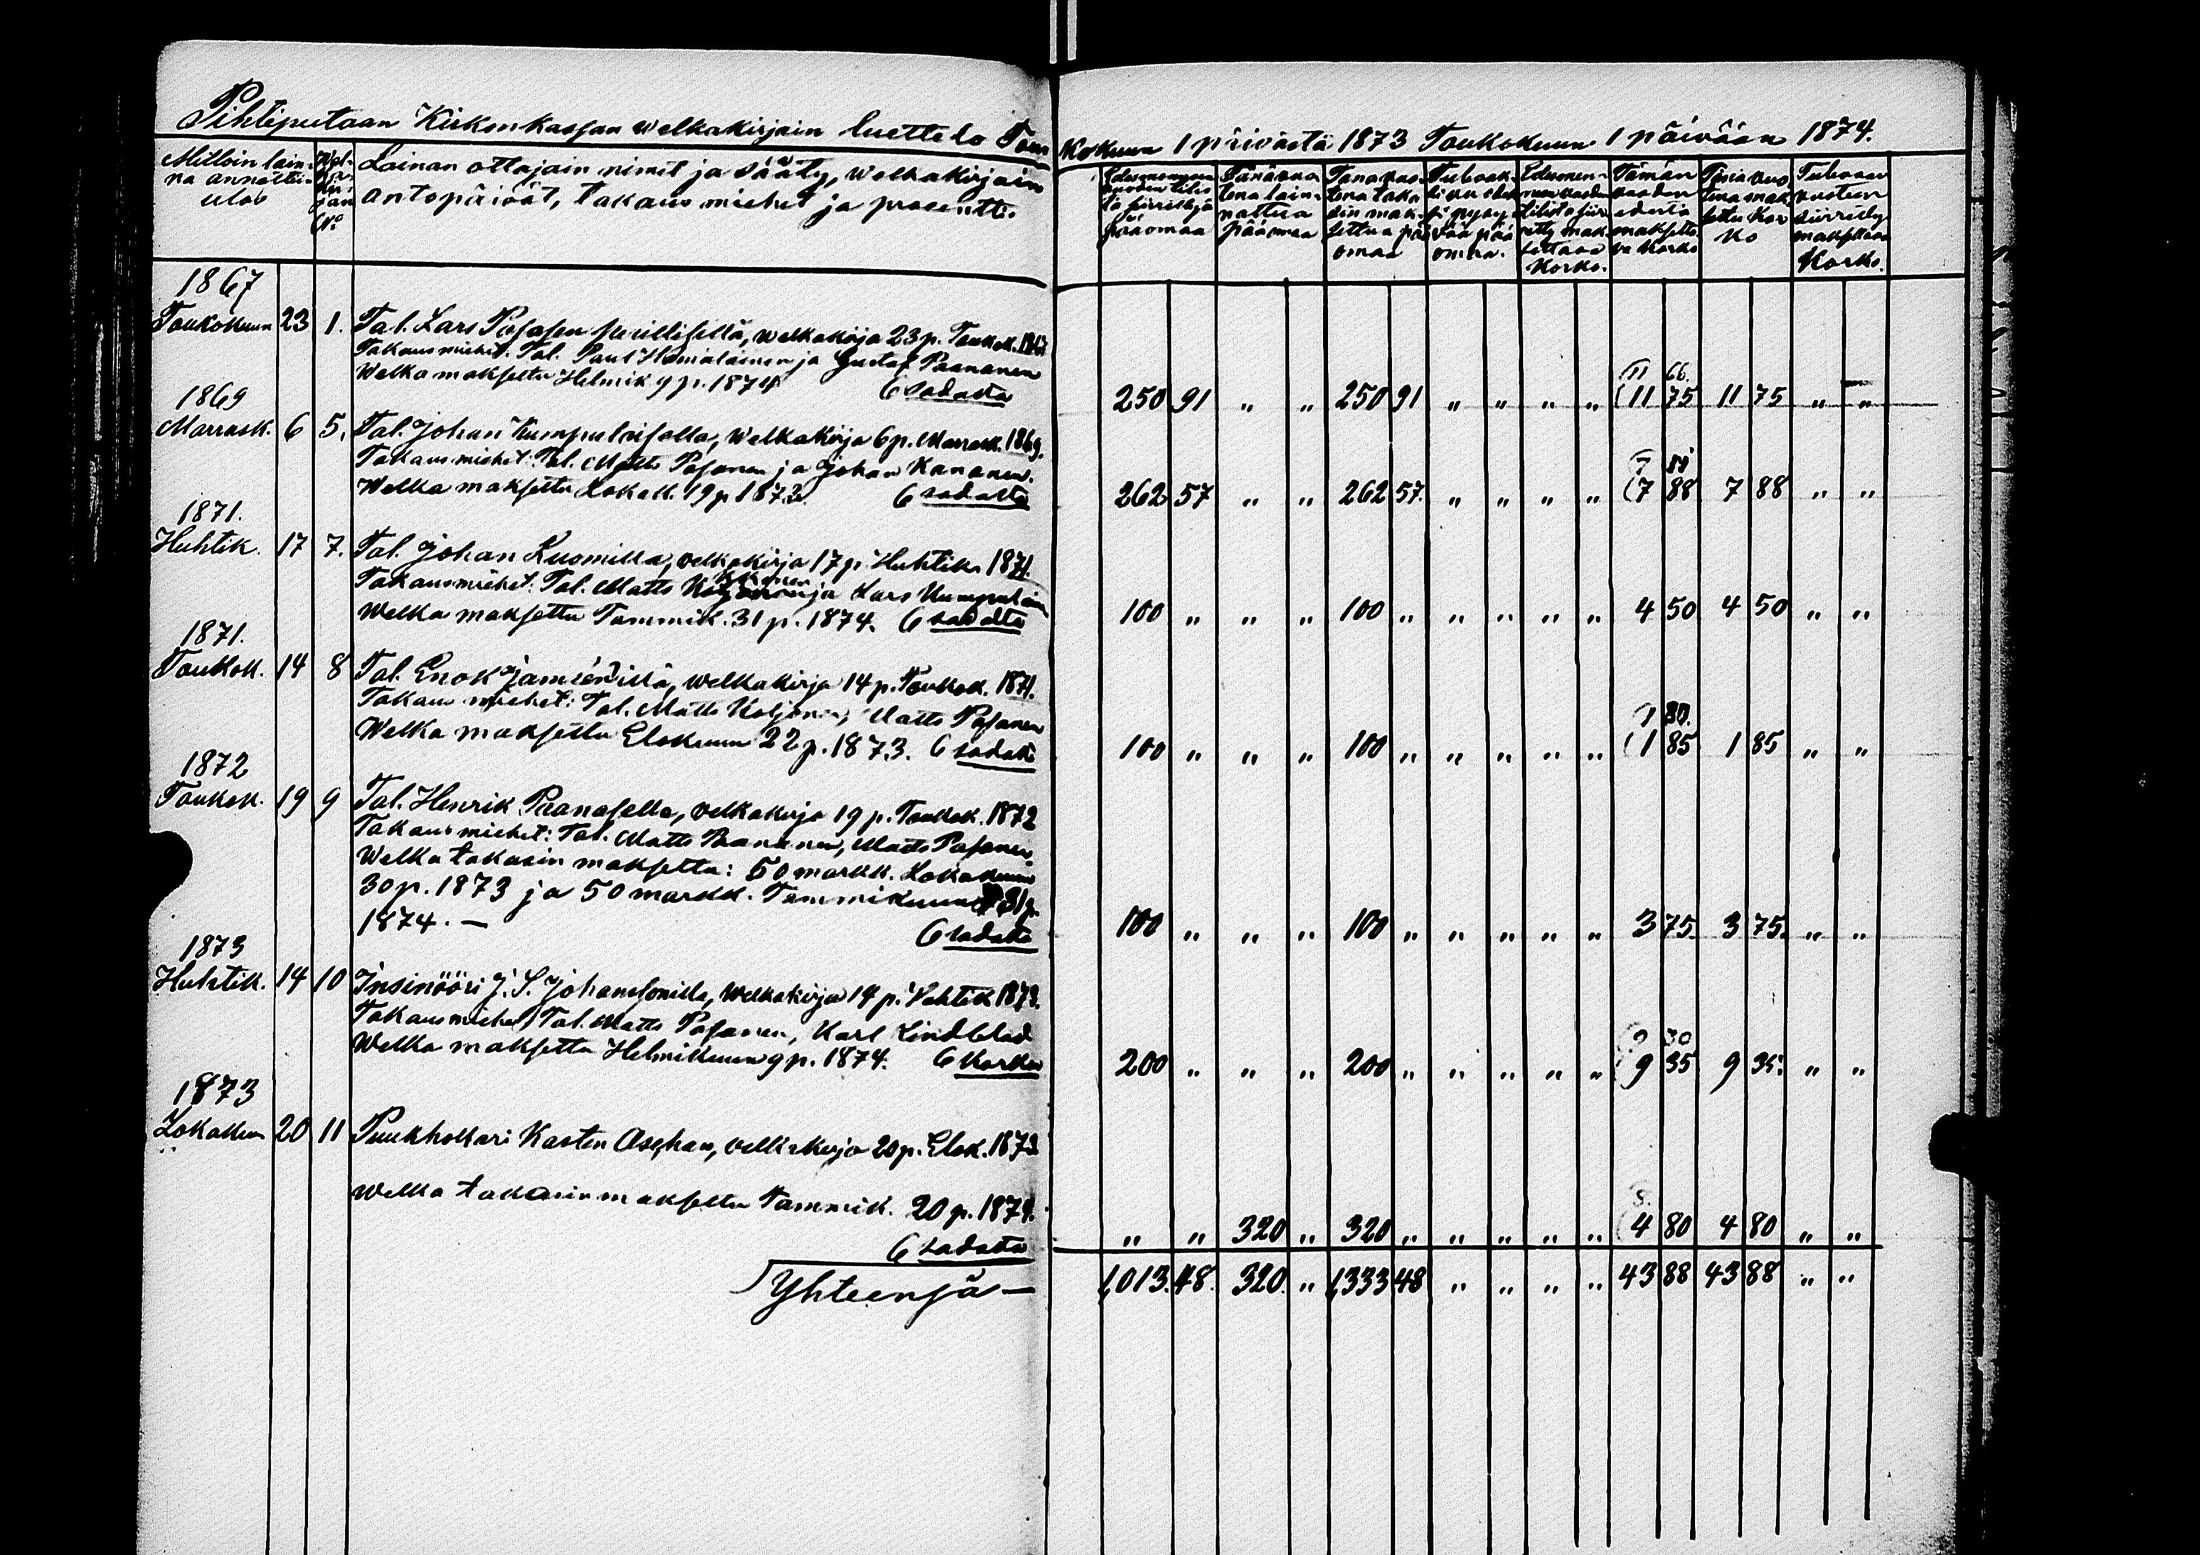 Pihtiputaan Kirkonkassan welkakirjain luettelo Toukokuun 1 päivästä 1873 Toukokuun 1 päivään 1874.
Milloin lainna annettiin ulos
Welkakirjan No
Lainan ottajain nimet ja sääty, welkakirjain
antopäivät, takausmiehet ja prosentti.
Tänävuonna lainattua pääomaa
Tänävuonna takasin maksettua pääomaa
Tämän vuoden edestä maksettava korko
Tänä vuonna maksettu korko
1867
Toukokuun 23 1. Tal. Lars Posasen perillisellä, welkakirja 23 p. Toukok. 1867
Takausmiehet. Tal. Paul Hämäläinen ja Gustaf Paananen
Welka maksettu Helmik. 9 p. 1874 6 sadasta
11 66.
250 91 " " 250 91 " " " " (11 75 11 75 " "
1869
Marrask. 6 5. Tal. Johan Kumpulaisella, welkakirja 6 p. Marrask. 1869.
Takausmiehet: Tal. Matts Posanen ja Johan Kananen.
Welka maksettu Lokak. 19 p 1873. 6 sadasta
262 57 " " 262 57. " " " " (7 88 7 88 " "
1871.
Huhtik. 17 7. Tal. Johan Kuomilla, velkakirja 17 p. Huhtik. 1871.
Takausmiehet. Tal. Matts ja Lars Kumpulain
Welka maksettu Tammik. 31 p. 1874. 6 sadasta
100 " " " 100 " " " " " 4 50 4 50 " "
1871.
Toukok. 14 8 Tal. Enok Jamsénillä, welkakirja 14 p. Toukok. 1871.
Takausmiehet: Tal. Matts Koljonen, Matts Posanen
Welka maksettu Elokuun 22 p. 1873. 6 sadasta
1 80.
100 " " " 100 " " " " " (1 85 1 85 " "
1872
Toukok. 19 9 Tal. Henrik Paanasella, velkakirja 19 p. Toukok. 1872
Takausmiehet: Tal. Matts Paananen, Matts Posanen.
Welka takasin maksettu: 50 markk. Lokakuun
30 p. 1873 ja 50 markk. Tammikuun 31 p.
1874. — 6 sadasta
100 " " " 100 " " " " " 3 75. 3 75. " "
1873
Huhtik. 14 10 Insinööri J. S. Johanssonilla, welkakirja 14 p. Huhtik 1873.
Takausmiehet, Tal. Matts Posanen, Karl Lindblad
Welka maksettu Helmikuun 9 p. 1874. 6 korko
9 30
200 " " " 200 " " " " " (9 35 9 35. " "
1873
Lokakuun 20 11 Puukhollari Karsten Asehan, velkakirja 20 p. Elok. 1873
Welka takasin maksettu Tammik. 20 p. 1874.
6 sadasta
" " 320 " 320 " " " " " (4 80 4 80 " "
Yhteensä — 1,013. 48. 320. " 1,333 48 " " " " 43 88 43 88 " "